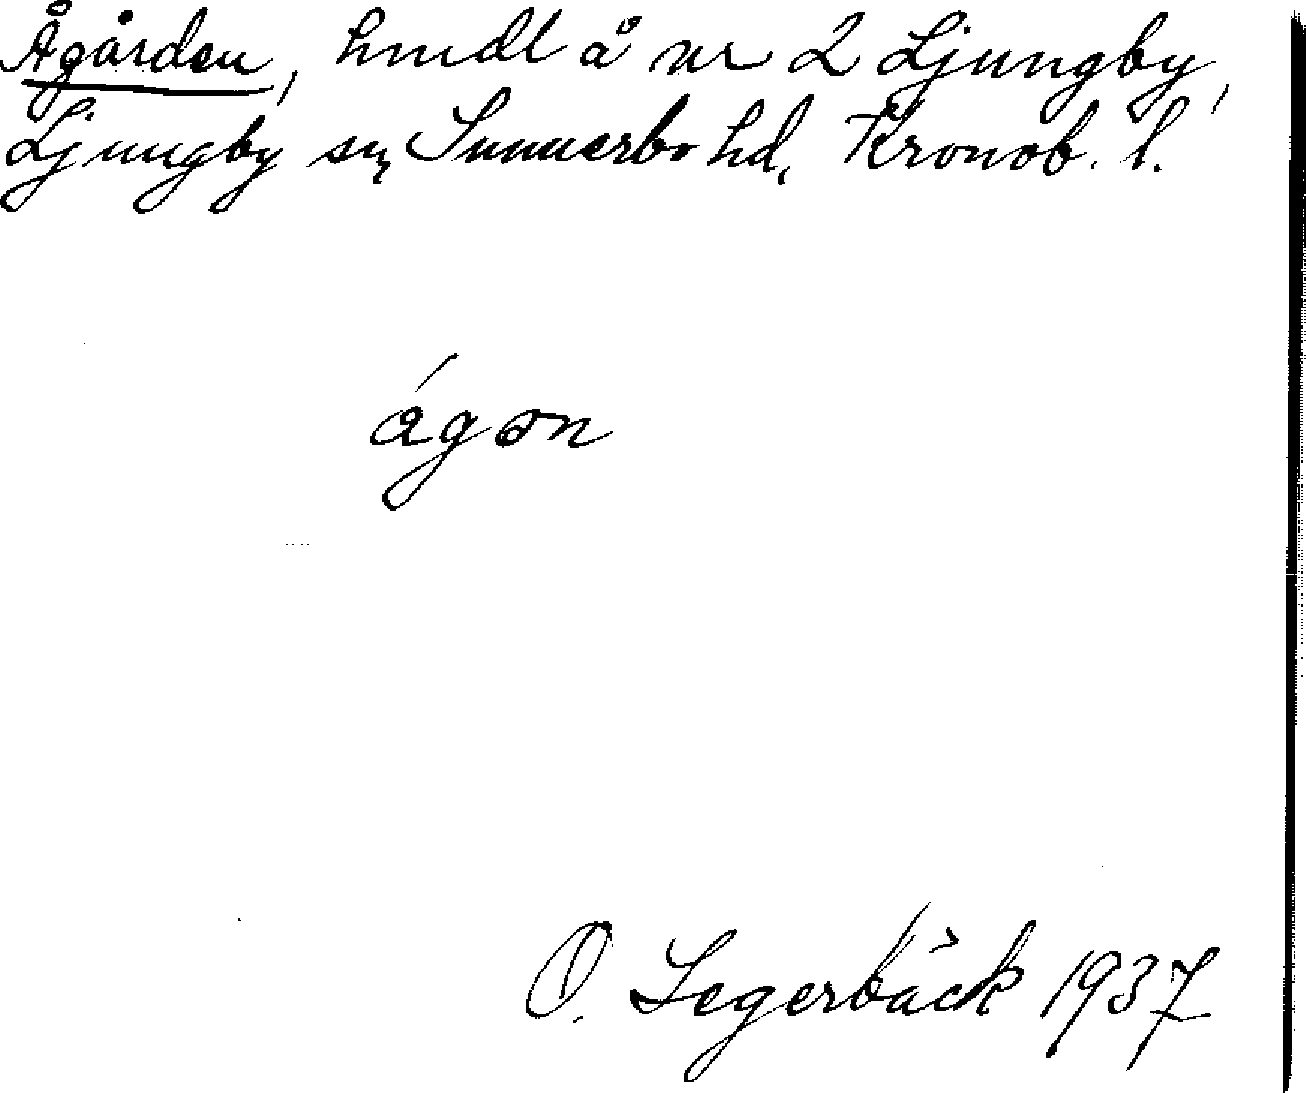 Ågården, hmdl å nr 2 Ljungby,
Ljungby sn, Sunnerbo hd, Kronob. l.
ágən
O. Segerbäck 1937